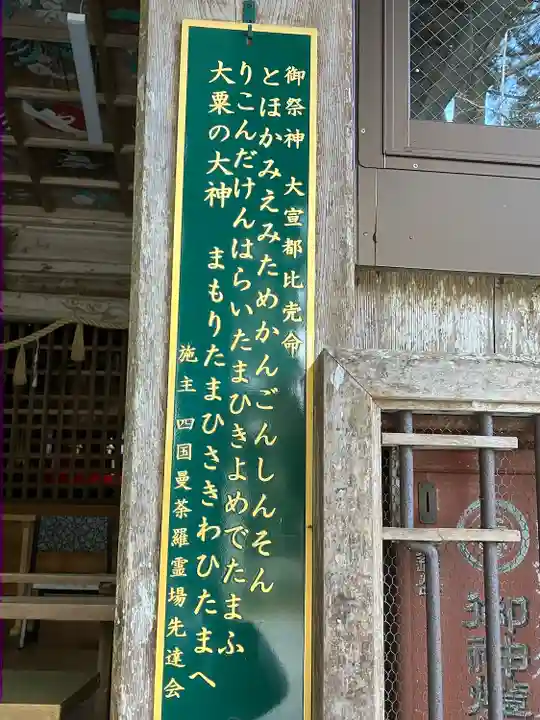 御祭神 大宣都比売命
とほかみえみためかんごんしんそん
りこんだけんはらいたまひきよめでたまふ
大粟の大神 まもりたまひさきわひたまへ
施主 四国曼荼羅霊場先達会
御神